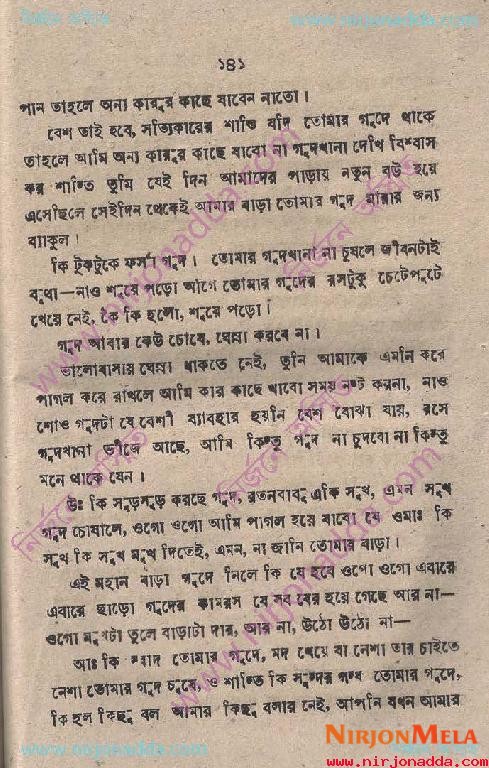 ১৪১
পান তাহলে অন্য কারুর কাছে যাবেন নাতো।
বেশ তাই হবে, সত্যিকারের শান্তি যদি তোমার গুদে থাকে
তাহলে আমি অন্য কারুর কাছে যাবো না গুদখানা দেখি বিশ্বাস
কর শান্তি তুমি যেই দিন আমাদের পাড়ায় নতুন বউ হয়ে
এসেছিলে সেইদিন থেকেই আমার বাড়া তোমার গুদ মারার জন্য
ব্যাকুল।
কি টুকটুকে ফর্সা গুদ। তোমার গুদখানা না চুষলে জীবনটাই
বৃথা—নাও শুয়ে পড়ো আগে তোমার গুদের রসটুকু চেটেপুটে
খেয়ে নেই, কৈ কি হলো, শুয়ে পড়ো।
গুদ আবার কেউ চোষে, ঘেন্না করবে না।
ভালোবাসায় ঘেন্না থাকতে নেই, তুমি আমাকে এমনি করে
পাগল করে রাখলে আমি কার কাছে যাবো সময় নষ্ট করনা, নাও
শোও গুদটা যে বেশী ব্যাবহার হয়নি বেশ বোঝা যায়, রসে
গুদখানা ভীজে আছে, আমি কিন্তু গুদ না চুদবো না কিন্তু
মনে থাকে যেন।
উঃ কি সুড়সুড় করছে গুদ, রতনবাবু একি সুখ, এমন সুখ
গুদ চোষালে, ওগো ওগো আমি পাগল হয়ে যাবো যে ওমাঃ কি
সুখ কি সুখ মুখ দিতেই, এমন, না জানি তোমার বাড়া।
এই মহান বাড়া গুদে নিলে কি যে হবে ওগো ওগো এবারে
এবারে ছাড়ো গুদের কামরস যে সব বের হয়ে গেছে আর না—
ওগো মুখটা তুলে বাড়াটা দাও, আর না, উঠো উঠো না—
আঃ কি স্বাদ তোমার গুদে, মদ খেয়ে যা নেশা তার চাইতে
নেশা তোমার গুদ চুষে, ও শান্তি কি সুন্দর গন্ধ তোমার গুদে,
কি হল কিছু বল আমার কিছু বলার নেই, আপনি যখন আমার
নির্জনে অস্মিত
www.nirjonadda.com
NIRJONMELA
www.nirjonadda.com